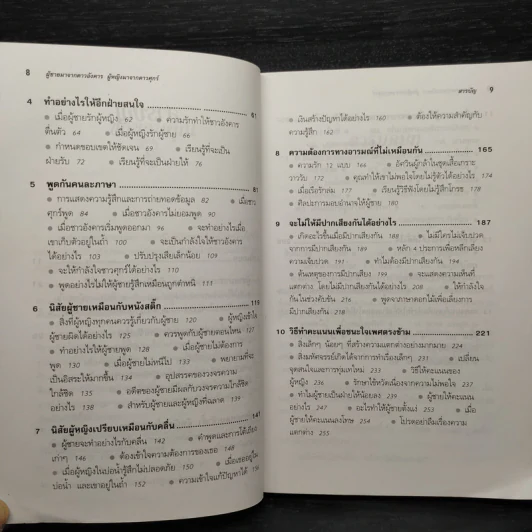 8 ผู้ชายมาจากดาวอังคาร ผู้หญิงมาจากดาวศุกร์
4 ทำอย่างไรให้อีกฝ่ายสนใจ 61
เมื่อผู้ชายรักผู้หญิง 62 ความรักทำให้ชาวอังคาร
ตื่นตัว 64 เมื่อผู้หญิงรักผู้ชาย 66
กำหนดขอบเขตให้ชัดเจน เรียนรู้ที่จะเป็น
ฝ่ายรับ 72 เรียนรู้ที่จะเป็นฝ่ายให้ 76
5 พูดกันคนละภาษา 81
การแสดงความรู้สึกและการถ่ายทอดข้อมูล 82 เมื่อชาว
ศุกร์พูด 84 เมื่อชาวอังคารไม่ยอมพูด 90
เมื่อชาวอังคารเริ่มพูดออกมา 96 จะทำอย่างไรเมื่อ
เขาเก็บตัวอยู่ในถ้ำ จะเป็นกำลังใจให้ชาวอังคาร
ได้อย่างไร 103 ปรับปรุงเสียเล็กน้อย 109
จะให้กำลังใจชาวศุกร์ได้อย่างไร 110
พูดอย่างไรไม่ให้ผู้ชายรู้สึกเหมือนถูกตำหนิ
6 นิสัยผู้ชายเหมือนกับหนังสติ๊ก 119
สิ่งที่ผู้หญิงทุกคนควรรู้เกี่ยวกับผู้ชาย ผู้หญิงเข้าใจ
ผู้ชายผิดได้อย่างไร 125 ควรพูดกับผู้ชายตอนไหน
ทำอย่างไรให้ผู้ชายพูด 128 เมื่อผู้ชายไม่ต้องการ
พูด 130 เมื่อผู้ชายไม่หนีไป 133 พยายามที่จะ
เป็นอิสระให้มากขึ้น 134 อุปสรรคของวงจรความ
ใกล้ชิด 135 อดีตของผู้ชายมีผลกับวงจรความใกล้ชิด
อย่างไร 138 สำหรับผู้ชายและผู้หญิงที่ฉลาด
7 นิสัยผู้หญิงเปรียบเหมือนกับคลื่น 141
ผู้ชายจะทำอย่างไรกับคลื่น 142 คำพูดและการโต้เถียง
เก่าๆ 146 ต้องเข้าใจความต้องการของเธอ 148
เมื่อผู้หญิงในบ่อน้ำรู้สึกไม่ปลอดภัย 150 เมื่อเธออยู่ใน
บ่อน้ำ และเขาอยู่ในถ้ำ 152 ความเข้าใจแก้ปัญหาได้
สารบัญ 9
เงินสร้างปัญหาได้อย่างไร 160 ต้องให้ความสำคัญกับ
ความรู้สึก 162
8 ความต้องการทางอารมณ์ที่ไม่เหมือนกัน 165
ความรัก 12 แบบ 166 อัศวินผู้กล้าในชุดเสื้อเกราะ
วาววับ คุณทำให้เขาไม่พอใจโดยไม่รู้ตัวได้อย่างไร 174
เมื่อเรือรักล่ม 177 เรียนรู้วิธีฟังโดยไม่รู้สึกโกรธ
ศิลปะการมอบอำนาจให้ผู้ชาย 180
9 จะไม่ให้มีปากเสียงกันได้อย่างไร 187
เกิดอะไรขึ้นเมื่อมีปากเสียงกัน 188 ไม่มีใครไม่เจ็บปวด
จากการมีปากเสียงกัน 189 หลัก 4 ประการเพื่อหลีกเลี่ยง
ความเจ็บปวด ทำไมต้องมีปากเสียงกัน 196
ต้นเหตุของการมีปากเสียง 199 จะแสดงความเห็นที่
แตกต่าง โดยไม่มีปากเสียงกันได้อย่างไร 208 ให้กำลังใจ
กันในช่วงคับขัน พูดจาภาษาดอกไม้เพื่อเลี่ยงการ
มีปากเสียงกัน 218
10 วิธีทำคะแนนเพื่อชนะใจเพศตรงข้าม 221
สิ่งเล็กๆ น้อยๆ ที่สร้างความแตกต่างอย่างมากมาย 224
สิ่งมหัศจรรย์เกิดได้จากการทำเรื่องเล็กๆ เปลี่ยน
จุดสนใจและการทุ่มเทใหม่ วิธีให้คะแนนของ
ผู้หญิง 236 รักษาไข้หวัดเนื่องจากความไม่พอใจ 237
ทำไมผู้ชายเป็นฝ่ายให้น้อยลง ผู้ชายให้คะแนน
อย่างไร 247 อะไรทำให้ผู้ชายตั้งแง่ 251 เมื่อ
ผู้ชายให้คะแนนลงโทษ 252 โปรดอย่าลืมเรื่องความ
แตกต่าง 255